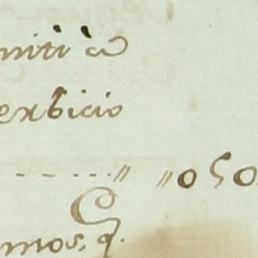 miti a
erbicio
- - - - - . . . " " 050
mos, q.